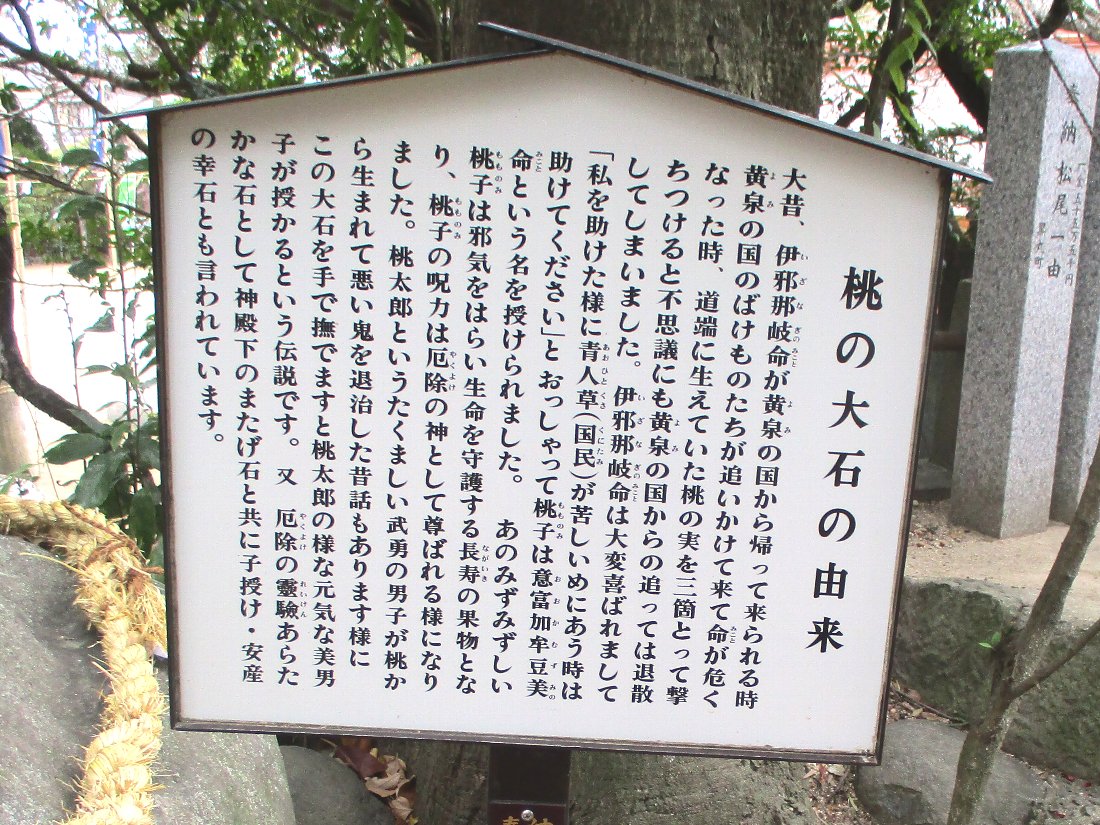 桃の大石の由来
大昔、伊邪那岐命が黄泉の国から帰って来られる時
黄泉の国のばけものたちが追いかけて来て命が危く
なった時、道端に生えていた桃の実を三箇とって撃
ちつけると不思議にも黄泉の国からの追っては退散
してしまいました。伊邪那岐命は大変喜ばれまして
「私を助けた様に青人草(国民)が苦しいめにあう時は
助けてください」とおっしゃって桃子は意富加牟豆美
命という名を授けられました。 あのみずみずしい
桃子は邪気をはらい生命を守護する長寿の果物とな
り、桃子の呪力は厄除の神として尊ばれる様になり
ました。桃太郎というたくましい武勇の男子が桃か
ら生まれて悪い鬼を退治した昔話もあります様に
この大石を手で撫でますと桃太郎の様な元気な美男
子が授かるという伝説です。又 厄除の靈驗あらた
かな石として神殿下のまたげ石と共に子授け・安産
の幸石とも言われています。
納 松尾一由